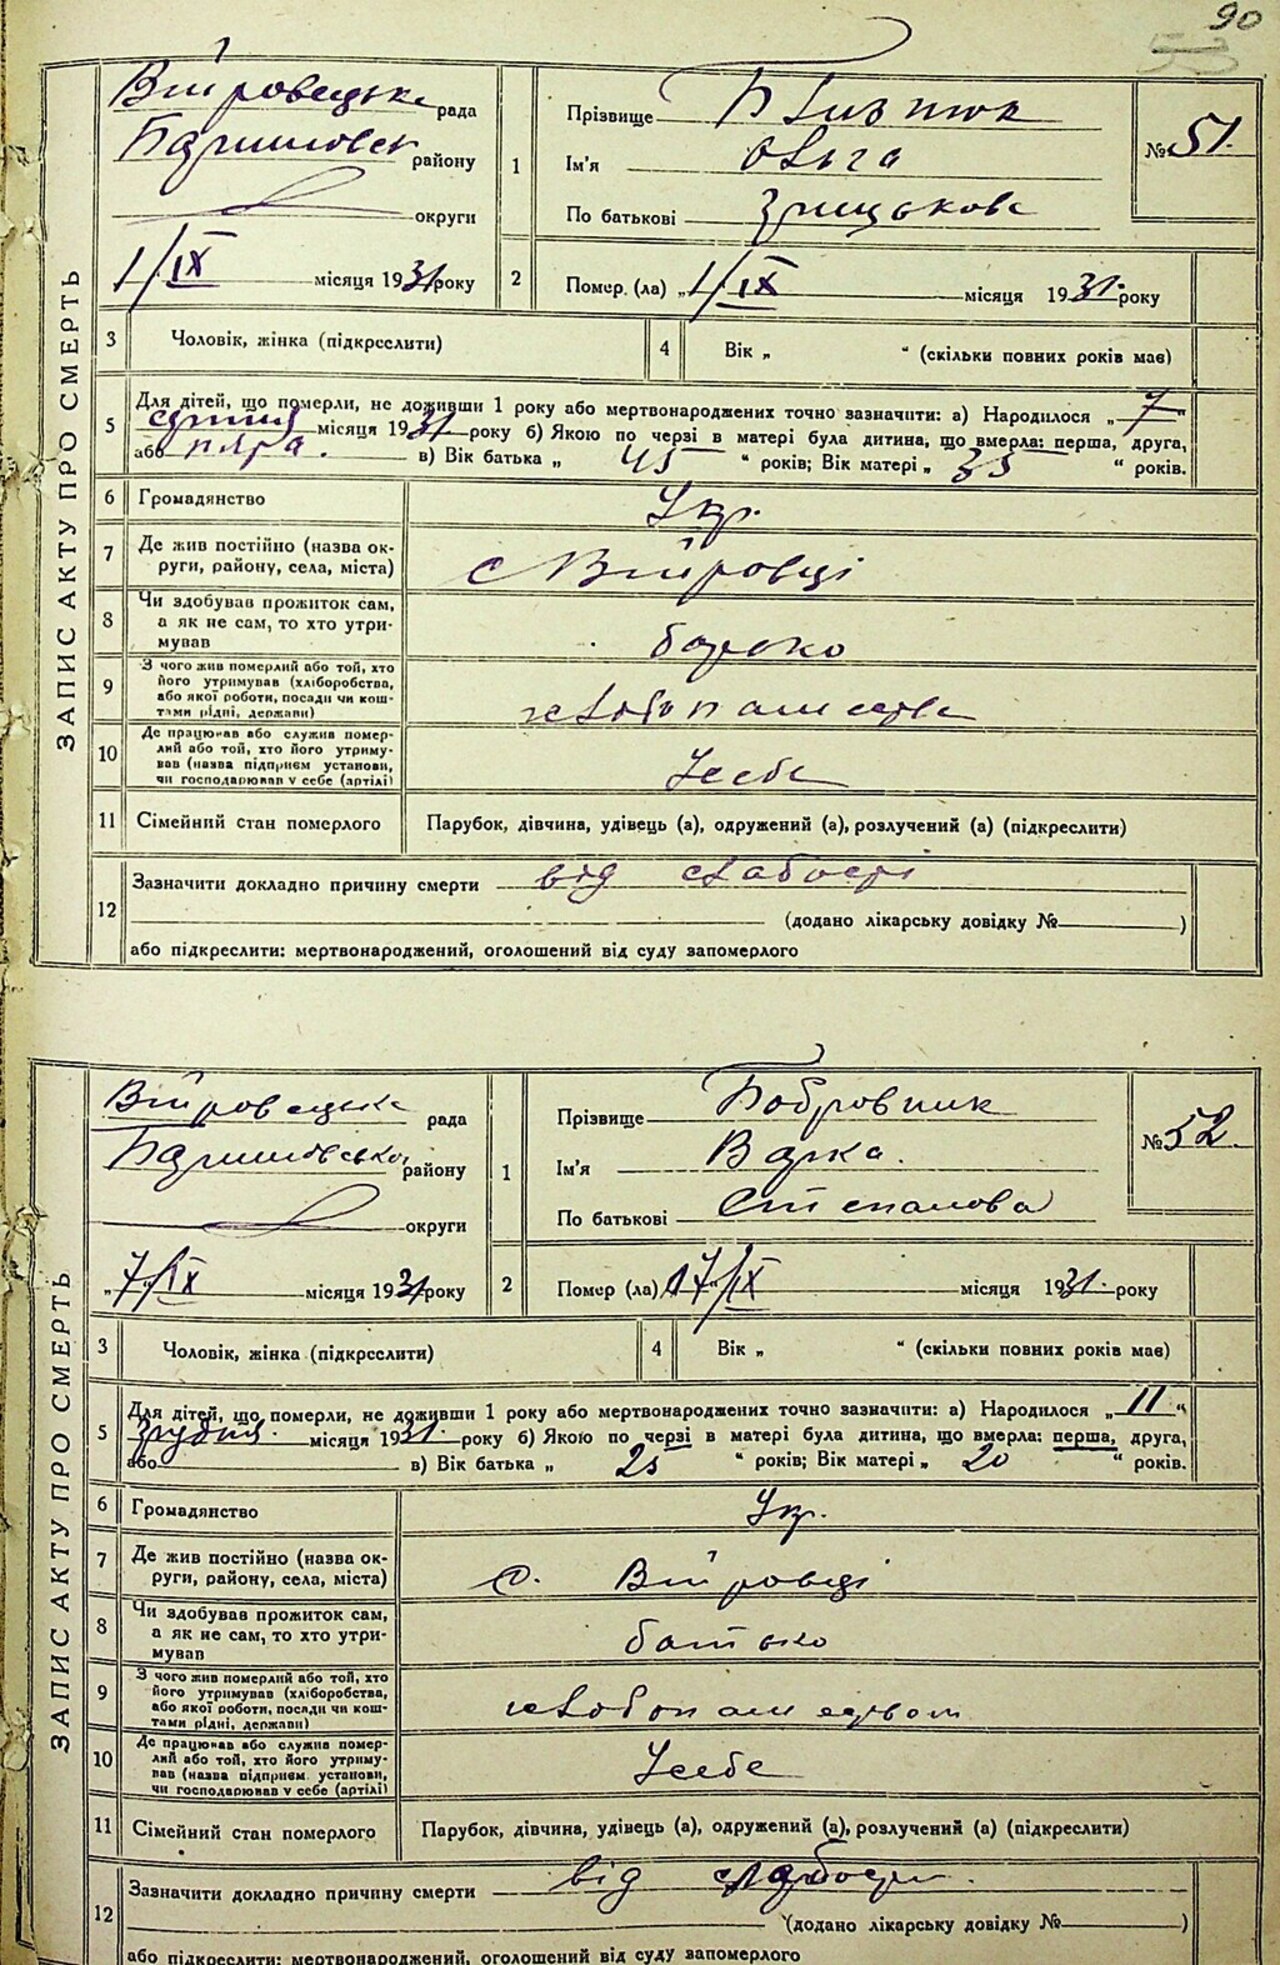 90
53
ЗАПИС АКТУ ПРО СМЕРТЬ
Війтовецька рада
району
округи
1/IX місяця 1931 року
1 Прізвище
Ім'я Ольга
По батькові Грицькова
№ 51.
2 Помер. (ла) „1/IX місяця 1931. року
3 Чоловік, жінка (підкреслити)
4 Вік „ “ (скільки повних років має)
5 Для дітей, що померли, не доживши 1 року або мертвонароджених точно зазначити: а) Народилося „7“
серпня місяця 1931 року б) Якою по черзі в матері була дитина, що вмерла: перша, друга,
або п'ята. в) Вік батька „ 45 “ років; Вік матері „ 35 “ років.
6 Громадянство Укр.
7 Де жив постійно (назва ок-
руги, району, села, міста) с Війтовці
8 Чи здобував прожиток сам,
а як не сам, то хто утри-
мував батько
9 З чого жив померлий або той, хто
його утримував (хліборобства,
або якої роботи, посади чи кош-
тами рідні, держави)
10 Де працював або служив помер-
лий або той, хто його утриму-
вав (назва підприєм установи,
чи господарював у себе (артілі) Усебе
11 Сімейний стан померлого Парубок, дівчина, удівець (а), одружений (а), розлучений (а) (підкреслити)
12 Зазначити докладно причину смерти від слабості
(додано лікарську довідку № )
або підкреслити: мертвонароджений, оголошений від суду запомерлого
ЗАПИС АКТУ ПРО СМЕРТЬ
Війтовецька рада
району
округи
„7“/IX місяця 1931 року
1 Прізвище Бобровник
Ім'я Варка.
По батькові Степанова
№ 52.
2 Помер (ла) 17/IX місяця 1931. року
3 Чоловік, жінка (підкреслити)
4 Вік „ “ (скільки повних років має)
5 Для дітей, що померли, не доживши 1 року або мертвонароджених точно зазначити: а) Народилося „11“
грудня. місяця 1931. року б) Якою по черзі в матері була дитина, що вмерла: перша, друга,
або в) Вік батька „ 25 “ років; Вік матері „ 20 “ років.
6 Громадянство Укр.
7 Де жив постійно (назва ок-
руги, району, села, міста) с. Війтовці
8 Чи здобував прожиток сам,
а як не сам, то хто утри-
мував батько
9 З чого жив померлий або той, хто
його утримував (хліборобства,
або якої роботи, посади чи кош-
тами рідні, держави)
10 Де працював або служив помер-
лий або той, хто його утриму-
вав (назва підприєм. установи,
чи господарював у себе (артілі) Усебе
11 Сімейний стан померлого Парубок, дівчина, удівець (а), одружений (а), розлучений (а) (підкреслити)
12 Зазначити докладно причину смерти від слабости.
(додано лікарську довідку № )
або підкреслити: мертвонароджений, оголошений від суду запомерлого